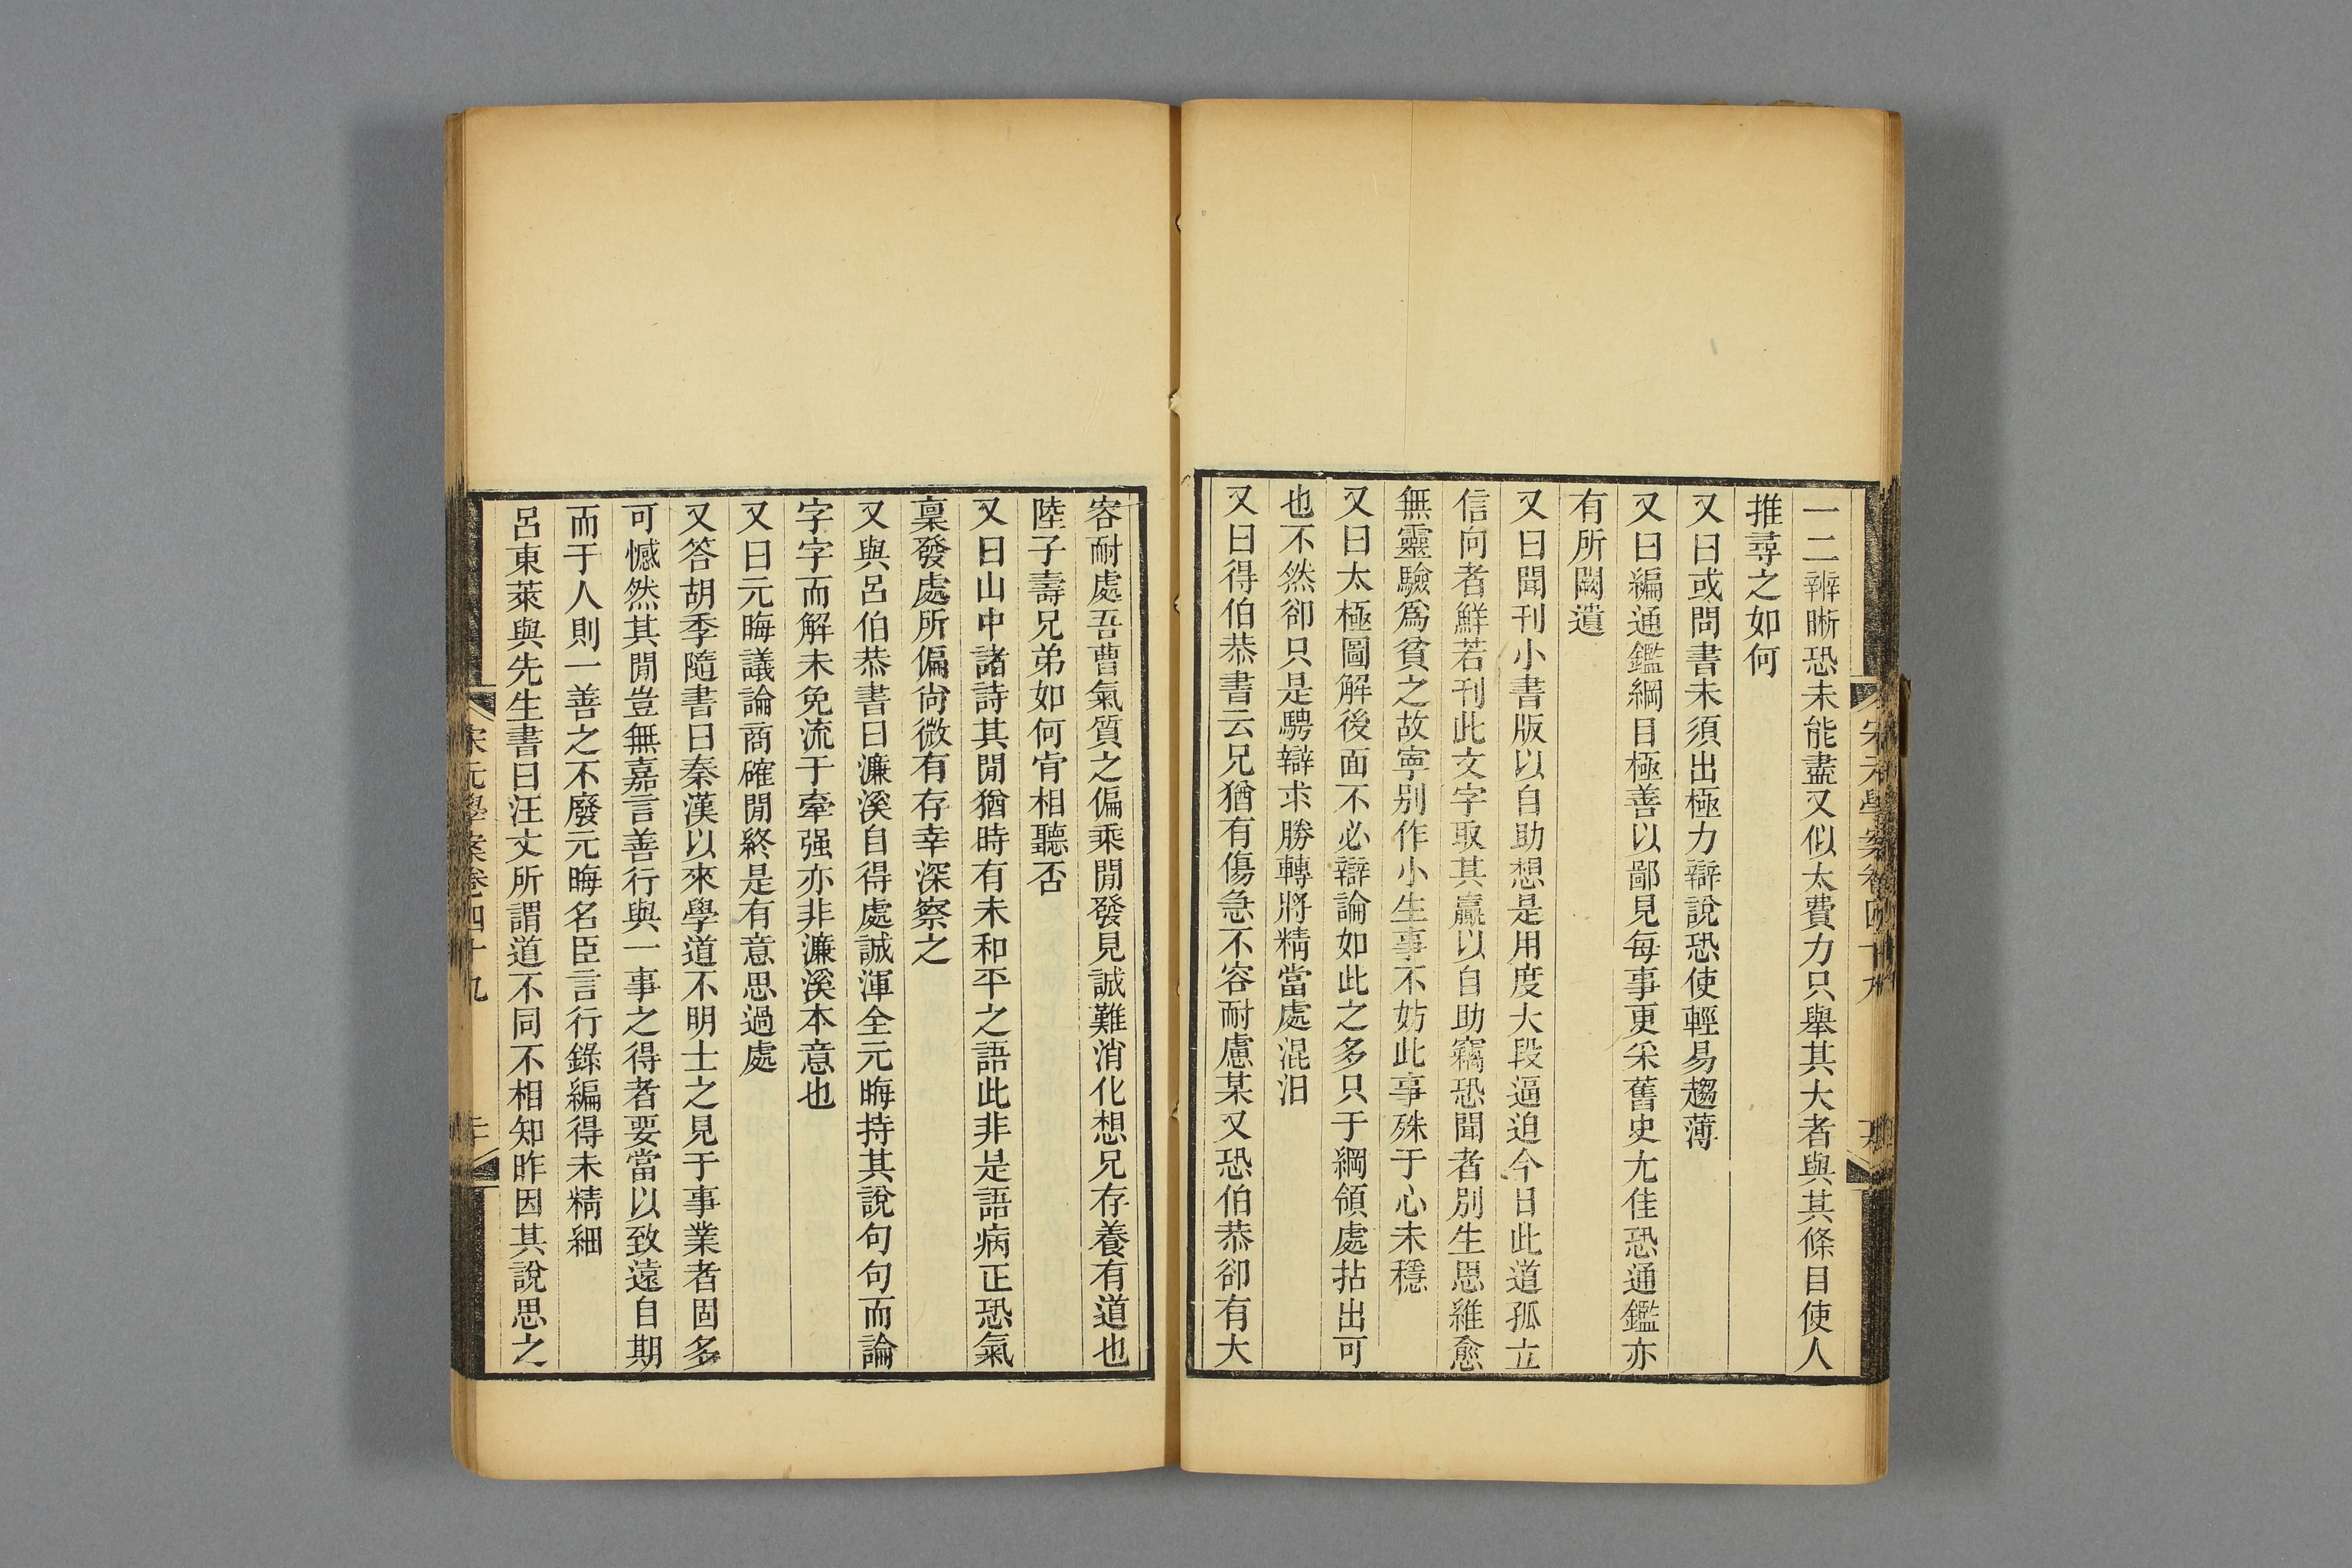 一二辨晰恐未能盡又似太費力只舉其大者與其條目使人
推尋之如何
又曰或問書未須出極力辯說恐使輕易趨薄
又曰編通鑑綱目極善以鄙見每事更采舊史尤佳恐通鑑亦
有所闕遺
又曰聞刊小書版以自助想是用度大段逼迫今日此道孤立
信向者鮮若刊此文字取其贏以自助竊恐聞者別生思維愈
無靈驗爲貧之故寧別作小生事不妨此事殊于心未穩
又曰太極圖解後面不必辯論如此之多只于綱領處拈出可
也不然卻只是騁辯求勝轉將精當處混汨
又曰得伯恭書云兄猶有傷急不容耐處某又恐伯恭卻有大
容耐處吾曹氣質之偏乘閒發見誠難消化想兄存養有道也
陸子壽兄弟如何肯相聽否
又曰山中諸詩其閒猶時有未和平之語此非是語病正恐氣
稟發處所偏尙微有存幸深察之
又與呂伯恭書曰濂溪自得處誠渾全元晦持其說句句而論
字字而解未免流于牽强亦非濂溪本意也
又曰元晦議論商確閒終是有意思過處
又答胡季隨書曰秦漢以來學道不明士之見于事業者固多
可憾然其閒豈無嘉言善行與一事之得者要當以致遠自期
而于人則一善之不廢元晦名臣言行錄編得未精細
呂東萊與先生書曰汪丈所謂道不同不相知昨因其說思之
宋元學案卷四十九